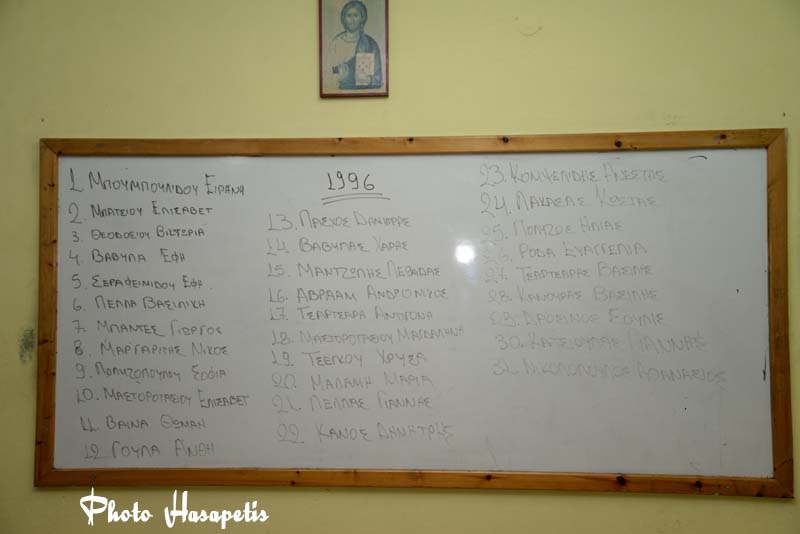 1. ΜΠΟΥΜΠΟΥΛΙΔΟΥ ΕΙΡΗΝΗ
2. ΜΠΑΤΣΙΟΥ ΕΛΙΣΑΒΕΤ
3. ΘΕΟΔΟΣΙΟΥ ΒΙΚΤΩΡΙΑ
4. ΒΑΒΥΛΑ ΕΦΗ
5. ΣΕΡΑΦΕΙΜΙΔΟΥ ΕΦΗ
6. ΠΕΛΛΑ ΒΑΣΙΛΙΚΗ
7. ΜΠΑΝΤΕΣ ΓΙΩΡΓΟΣ
8. ΜΑΡΓΑΡΙΤΗΣ ΝΙΚΟΣ
9. ΠΟΛΥΖΟΠΟΥΛΟΥ ΣΟΦΙΑ
10. ΜΑΣΤΟΡΟΤΑΣΙΟΥ ΕΛΙΣΑΒΕΤ
11. ΒΑΙΝΑ ΘΩΜΑΗ
12. ΓΟΥΛΑ ΑΝΘΗ
1996
13. ΠΑΣΧΟΣ ΔΗΜΗΤΡΗΣ
14. ΒΑΒΥΛΑΣ ΧΑΡΗΣ
15. ΜΑΝΤΖΩΛΗΣ
16. ΑΒΡΑΑΜ ΑΝΔΡΟΝΙΚΟΣ
17. ΤΣΑΡΤΣΑΡΑ ΑΝΤΙΓΟΝΗ
18. ΜΑΣΤΟΡΟΤΑΣΙΟΥ ΜΑΓΔΑΛΗΝΗ
19. ΤΣΕΛΚΟΥ ΧΡΥΣΑ
20. ΜΑΛΑΜΗ ΜΑΡΙΑ
21. ΠΕΛΛΑΣ ΓΙΑΝΝΗΣ
22. ΚΑΝΟΣ ΔΗΜΗΤΡΗΣ
23. ΚΟΜΨΕΛΙΔΗΣ ΑΝΕΣΤΗΣ
24. ΛΑΚΑΣΑΣ ΚΩΣΤΑΣ
25. ΠΟΛΥΖΟΣ ΗΛΙΑΣ
26. ΡΟΔΑ ΕΥΑΓΓΕΛΙΑ
27. ΤΣΑΡΤΣΑΡΗΣ ΒΑΣΙΛΗΣ
28. ΚΑΝΟΥΡΑΣ ΒΑΣΙΛΗΣ
29. ΔΡΟΣΙΝΟΣ ΣΟΥΛΗΣ
30. ΚΑΤΣΙΟΥΛΑΣ ΓΙΑΝΝΗΣ
31. ΝΙΚΟΛΟΠΟΥΛΟΣ ΑΘΑΝΑΣΙΟΣ
Photo Hasapetis